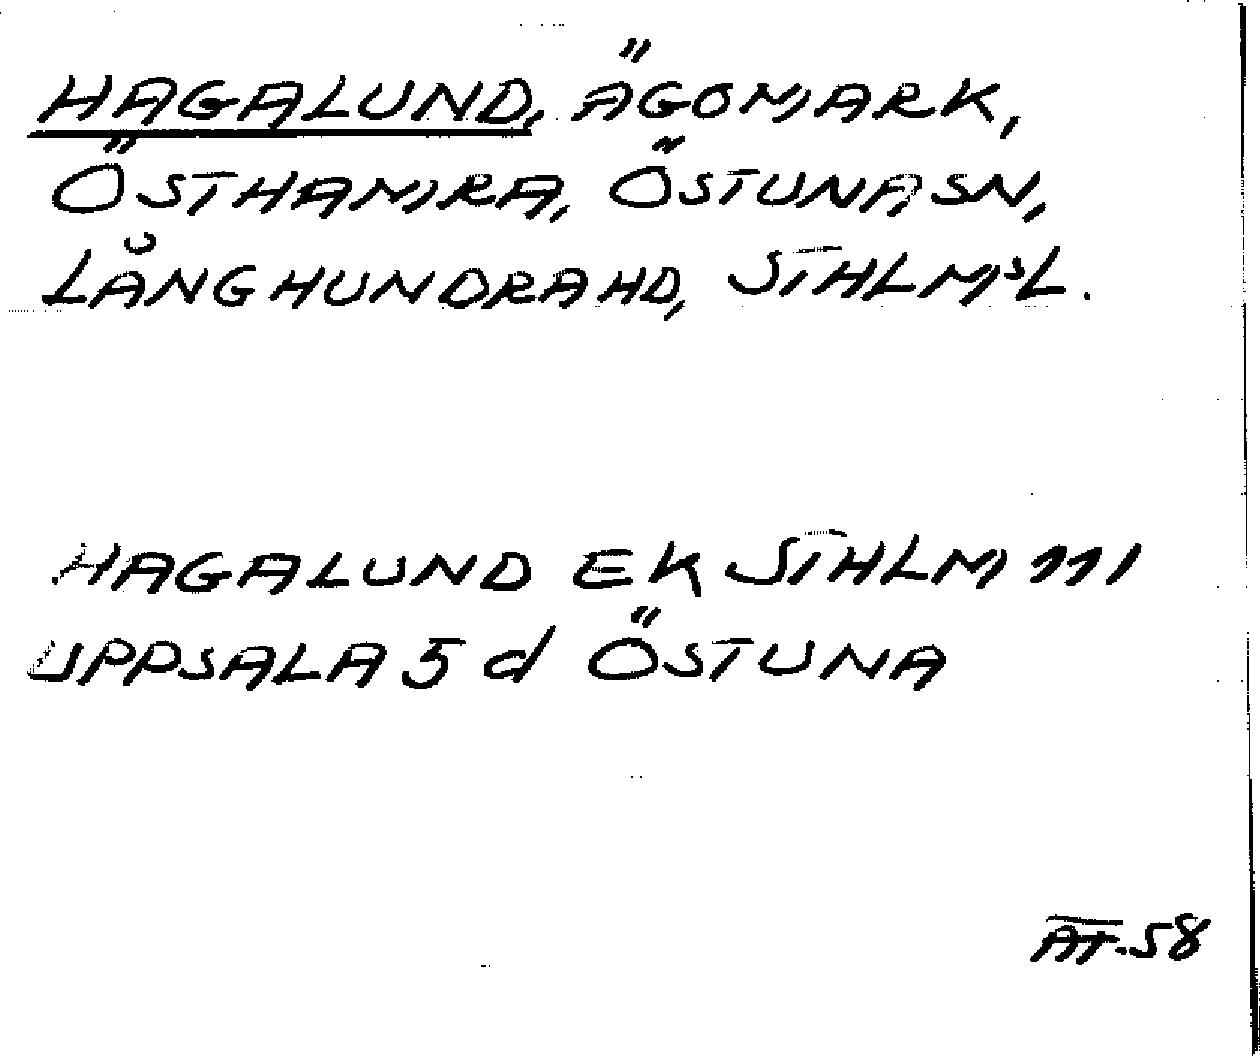 HAGALUND, ÄGOMARK,
ÖSTHAMRA, ÖSTUNA SN,
LÅNGHUNDRA HD, STHLMSL.
HAGALUND EK STHLM 111
UPPSALA 5 d ÖSTUNA
AT-58